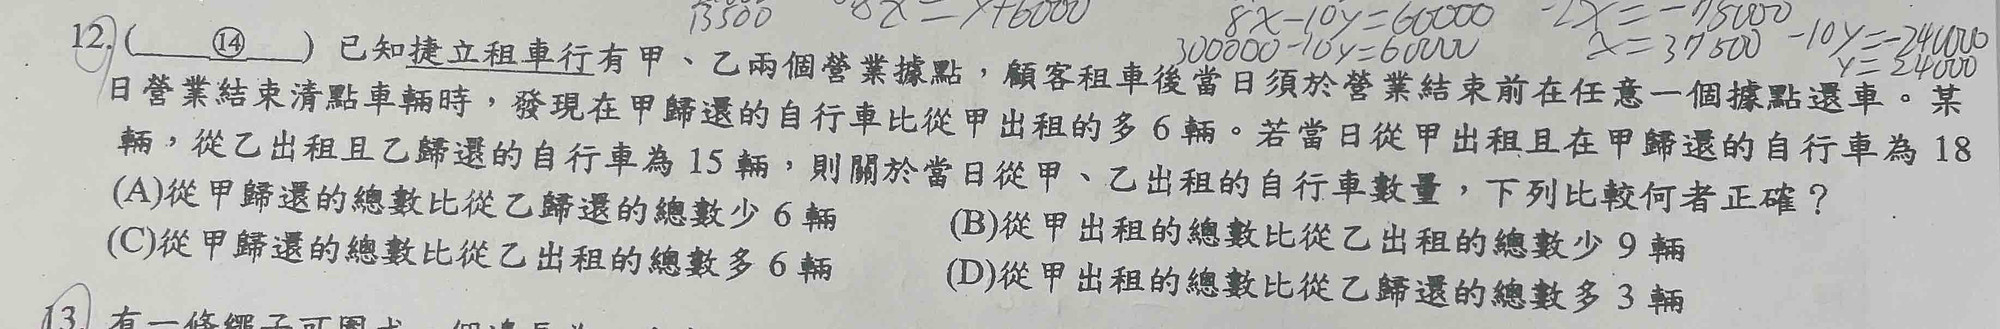 13500 8x = y+6000 8x-10y=60000 -2x=-75000
300000-10y=60000 x=37500 -10y=-240000
y=24000
12. ( ⑭ ) 已知捷立租車行有甲、乙兩個營業據點，顧客租車後當日須於營業結束前在任意一個據點還車。某
日營業結束清點車輛時，發現在甲歸還的自行車比從甲出租的多 6 輛。若當日從甲出租且在甲歸還的自行車為 18
輛，從乙出租且乙歸還的自行車為 15 輛，則關於當日從甲、乙出租的自行車數量，下列比較何者正確？
(A)從甲歸還的總數比從乙歸還的總數少 6 輛 (B)從甲出租的總數比從乙出租的總數少 9 輛
(C)從甲歸還的總數比從乙出租的總數多 6 輛 (D)從甲出租的總數比從乙歸還的總數多 3 輛
13. 有一條繩子可圍成